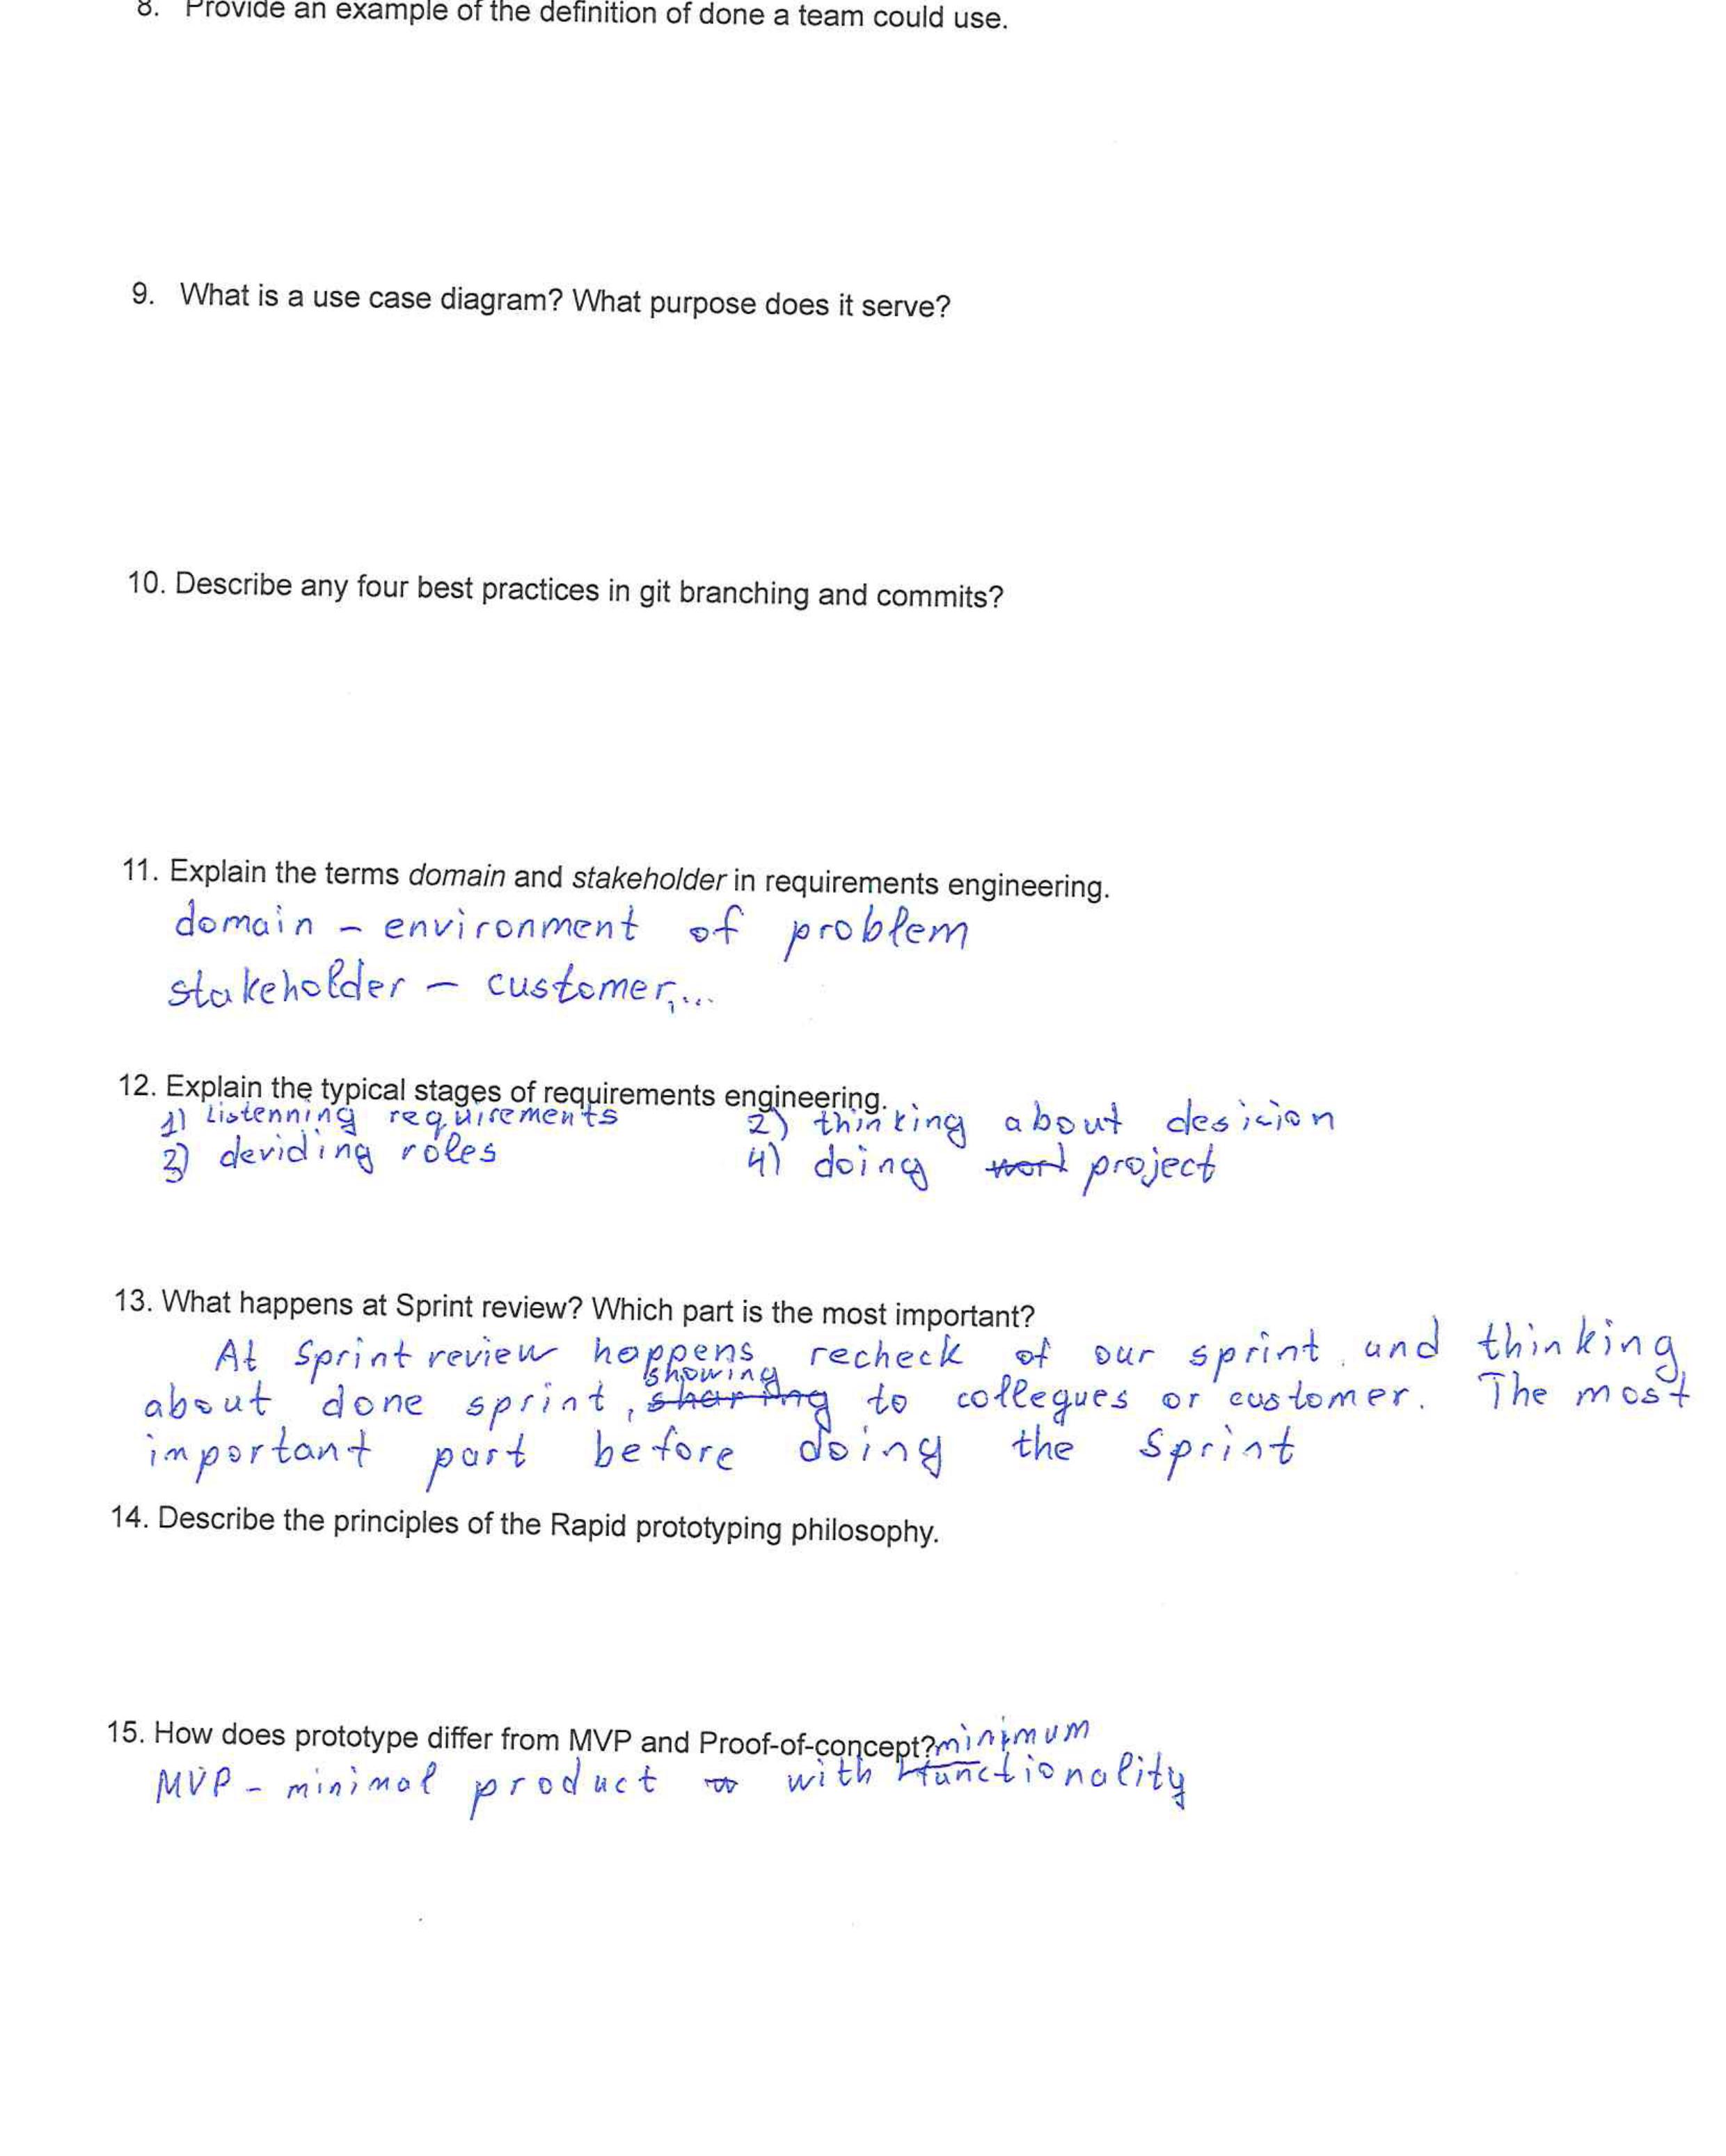 8. Provide an example of the definition of done a team could use.
9. What is a use case diagram? What purpose does it serve?
10. Describe any four best practices in git branching and commits?
11. Explain the terms domain and stakeholder in requirements engineering.
domain - environment of problem
stakeholder - customer,...
12. Explain the typical stages of requirements engineering.
1) Listenning requirements 2) thinking about desicion
3) deviding roles 4) doing work project
13. What happens at Sprint review? Which part is the most important?
At Sprint review happens recheck of our sprint, and thinking
showing
about done sprint, sharing to collegues or customer. The most
important part before doing the Sprint
14. Describe the principles of the Rapid prototyping philosophy.
15. How does prototype differ from MVP and Proof-of-concept? minimum
MVP - minimal product with functionality